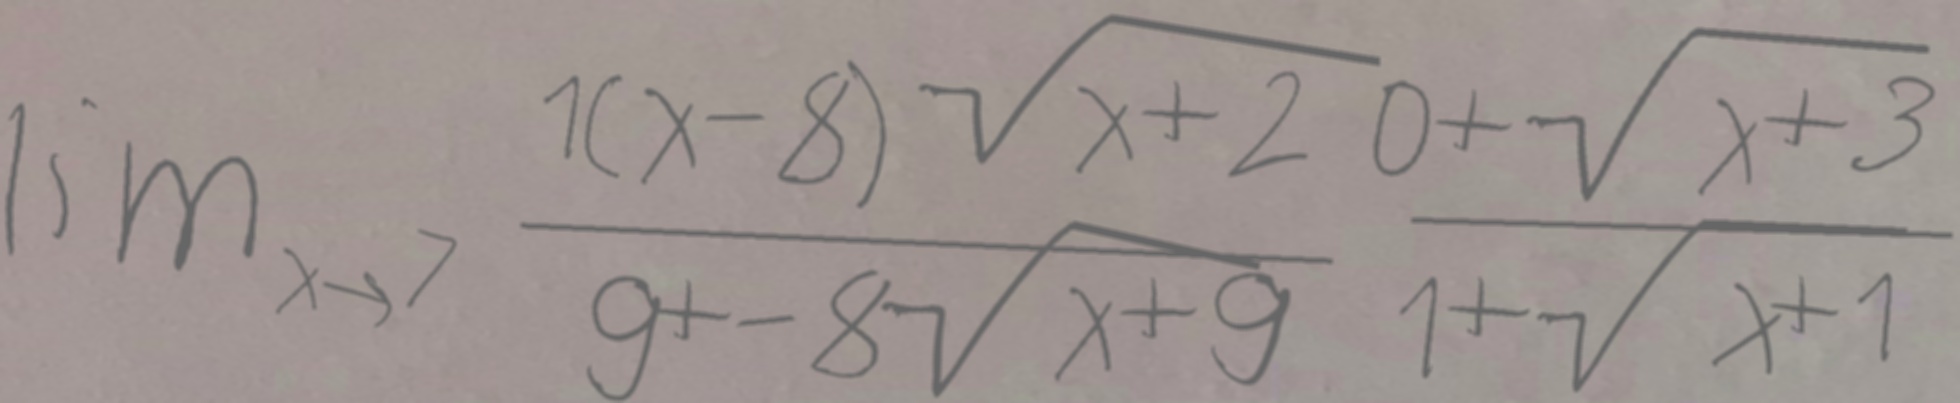 \lim_{x \to 7} \frac{1(x-8)\sqrt{x+2}}{9+-8\sqrt{x+9}} \frac{0+\sqrt{x+3}}{1+\sqrt{x+1}}